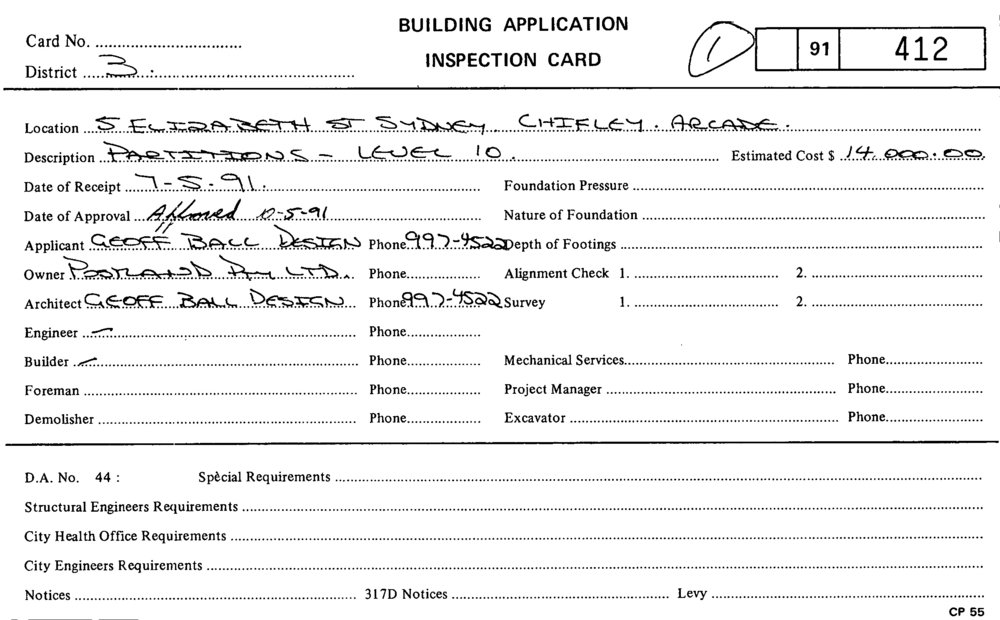 BUILDING APPLICATION
INSPECTION CARD
Card No.
District 3
1 91 412
Location 5 ELIZABETH ST SYDNEY. CHIFLEY. ARCADE.
Description PARTITIONS - LEVEL 10. Estimated Cost $ 14.000.00.
Date of Receipt 7-5-91. Foundation Pressure
Date of Approval Approved 10-5-91 Nature of Foundation
Applicant GEOFF BALL DESIGN Phone 997-4522 Depth of Footings
Owner PTY LTD. Phone Alignment Check 1. 2.
Architect GEOFF BALL DESIGN Phone 997-4522 Survey 1. 2.
Engineer - Phone
Builder - Phone Mechanical Services Phone
Foreman Phone Project Manager Phone
Demolisher Phone Excavator Phone
D.A. No. 44 : Spècial Requirements
Structural Engineers Requirements
City Health Office Requirements
City Engineers Requirements
Notices 317D Notices Levy
CP 55